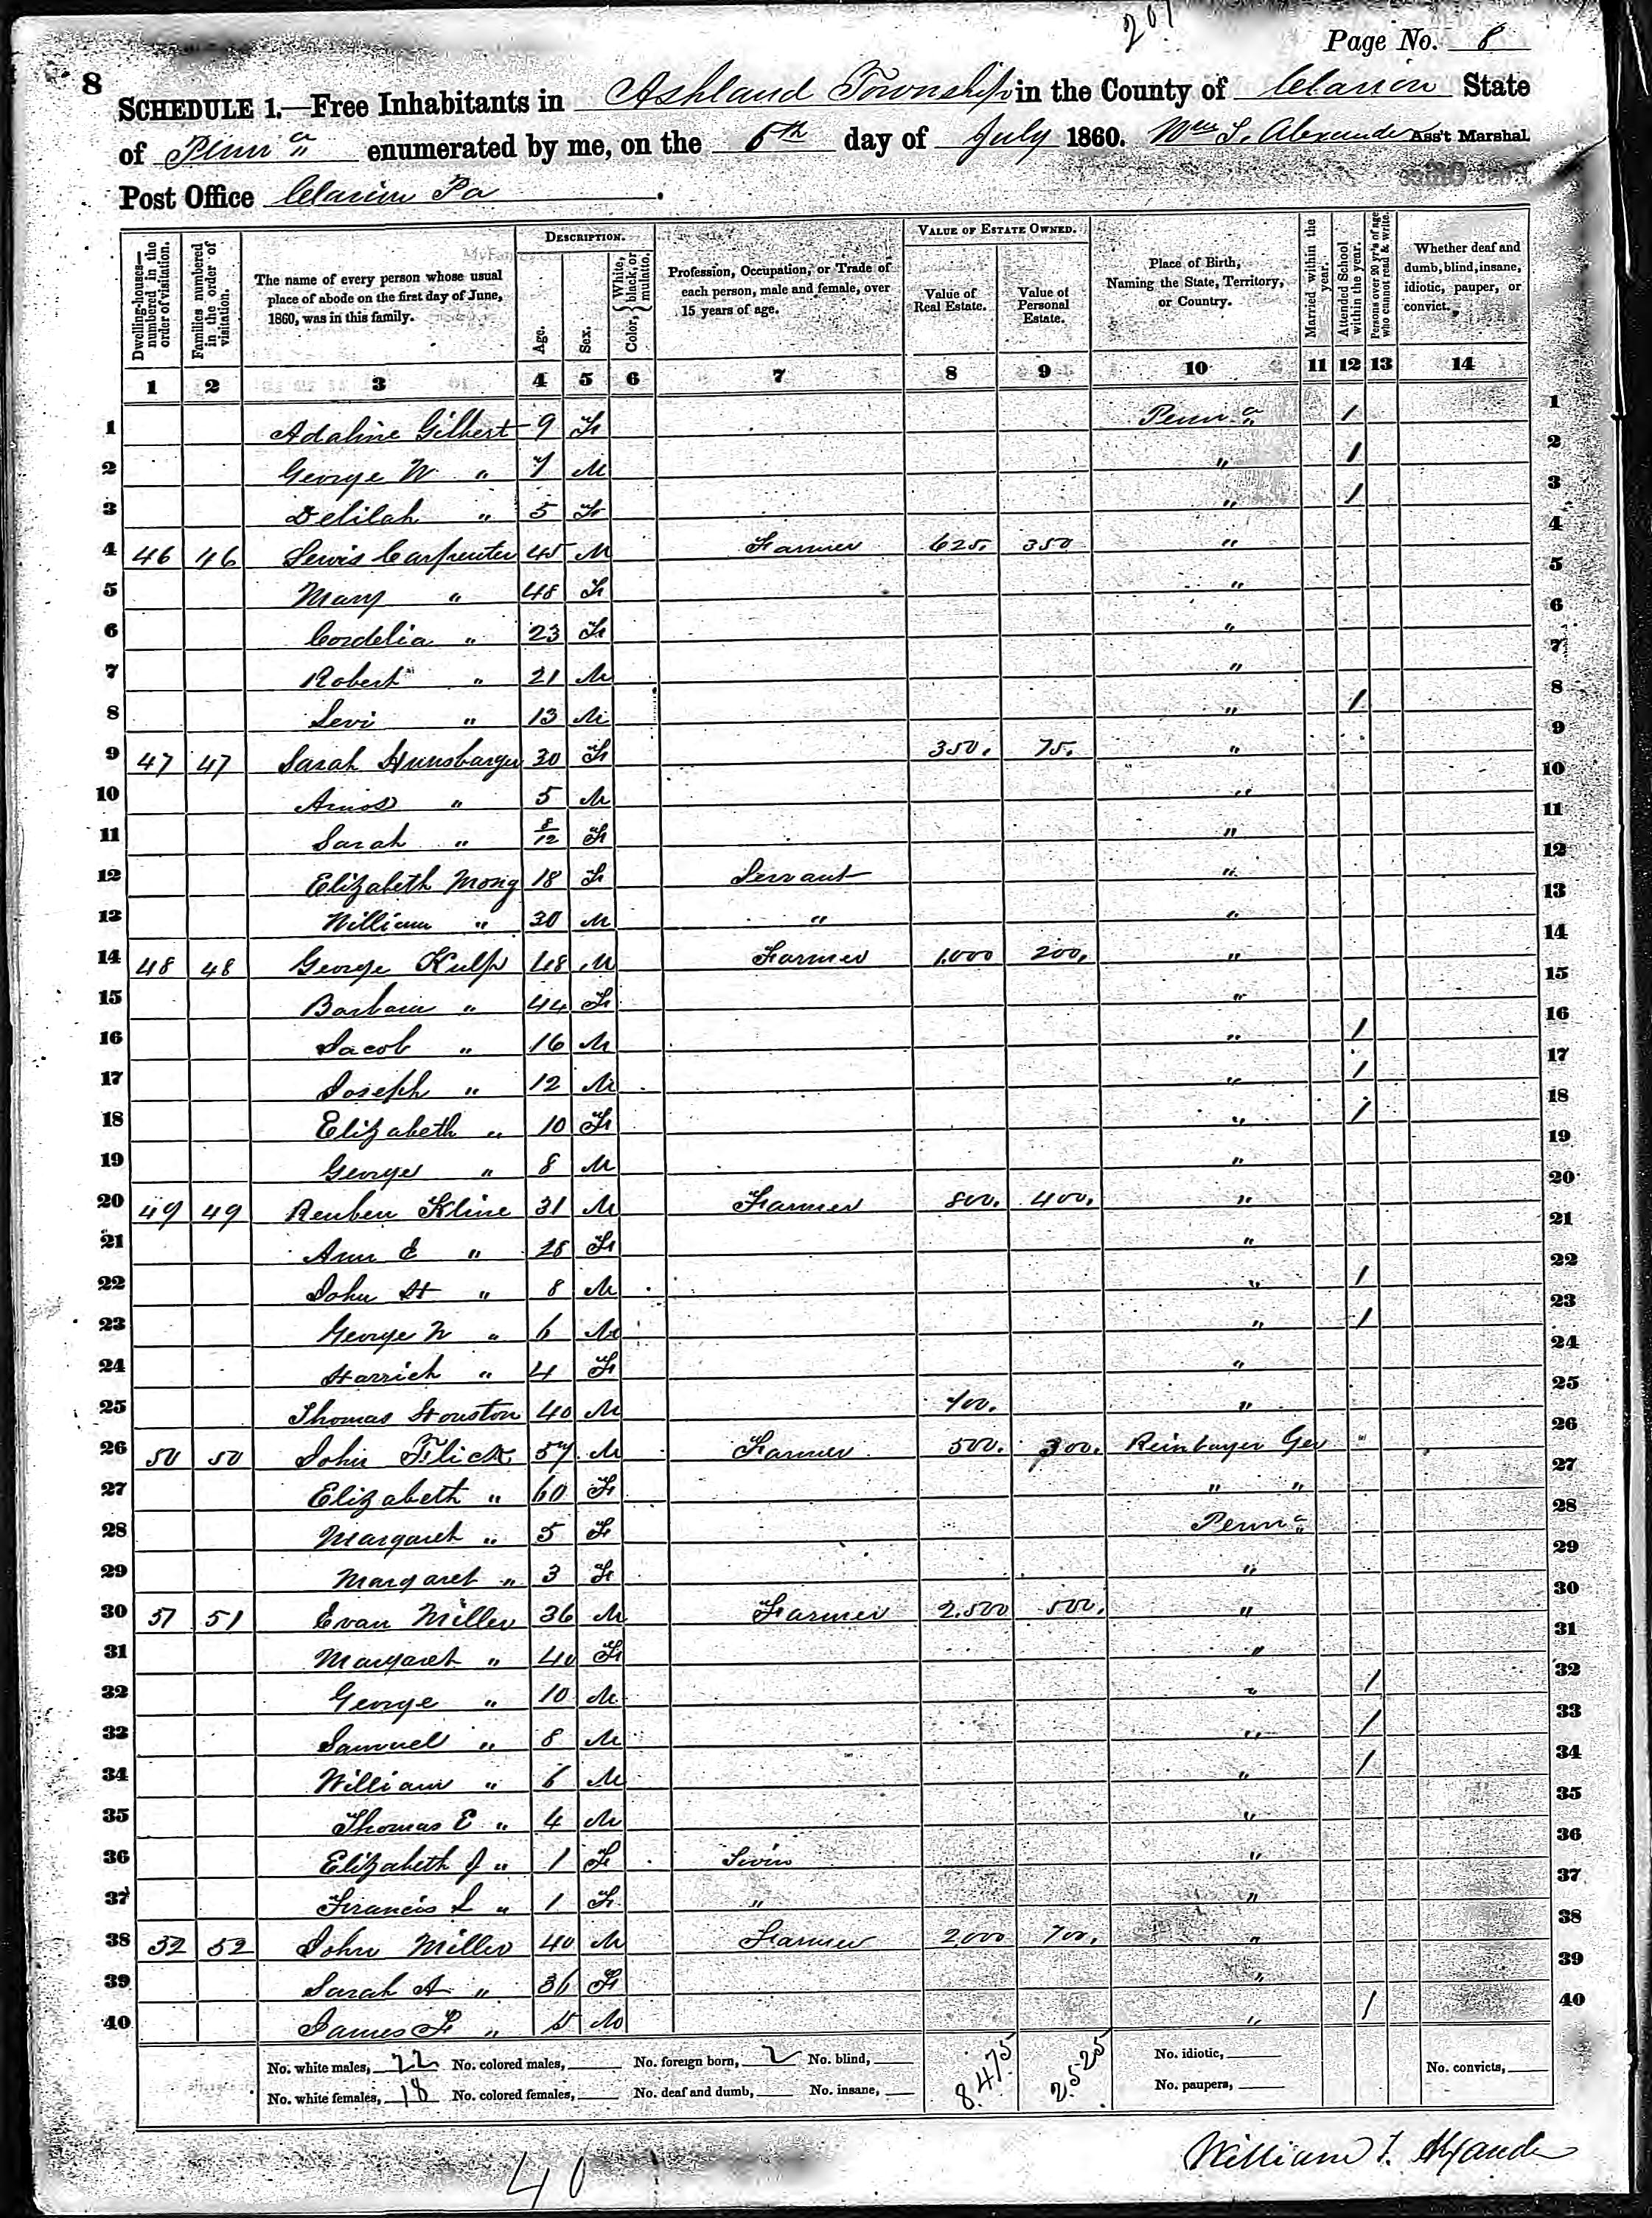 201
Page No. 8
8
SCHEDULE 1.—Free Inhabitants in Ashland Township in the County of Clarion State
of Penn a enumerated by me, on the 5th day of July 1860. Wm T. Alexander Ass't Marshal
Post Office Clarion Pa.
Dwelling-houses—numbered in the order of visitation.
Families numbered in the order of visitation.
The name of every person whose usual place of abode on the first day of June, 1860, was in this family.
DESCRIPTION.
Age.
Sex.
Color, { White, black, or mulatto.
Profession, Occupation, or Trade of each person, male and female, over 15 years of age.
VALUE OF ESTATE OWNED.
Value of Real Estate.
Value of Personal Estate.
Place of Birth, Naming the State, Territory, or Country.
Married within the year.
Attended School within the year.
Persons over 20 yr's of age who cannot read & write.
Whether deaf and dumb, blind, insane, idiotic, pauper, or convict.
1 2 3 4 5 6 7 8 9 10 11 12 13 14
1 Adaline Gilbert 9 F Penn a / 1
2 George W " 7 M " / 2
3 Delilah " 5 F " / 3
4 46 46 Lewis Carpenter 45 M Farmer 625. 350 " 4
5 Mary " 48 F " 5
6 Cordelia " 23 F " 6
7 Robert " 21 M " 7
8 Levi " 13 M " / 8
9 47 47 Sarah Hunsbarger 30 F 350. 75. " 9
10 Amos " 5 M " 10
11 Sarah " 8/12 F " 11
12 Elizabeth Mong 18 F Servant " 12
13 William " 30 M " " 13
14 48 48 George Kulp 48 M Farmer 1.000 200. " 14
15 Barbara " 44 F " 15
16 Jacob " 16 M " / 16
17 Joseph " 12 M " / 17
18 Elizabeth " 10 F " / 18
19 George " 8 M " 19
20 49 49 Reuben Kline 31 M Farmer 800. 400. " 20
21 Ann E " 28 F " 21
22 John H " 8 M " / 22
23 George W " 6 M " / 23
24 Harrieh " 4 F " 24
25 Thomas Houston 40 M 700. " 25
26 50 50 John Flick 57 M Farmer 500. 300. Reinbayer Ger " 26
27 Elizabeth " 60 F " " 27
28 Margaret " 5 F Penn a 28
29 Margaret " 3 F " 29
30 51 51 Evan Miller 36 M Farmer 2.500 500. " 30
31 Margaret " 40 F " 31
32 George " 10 M " / 32
33 Samuel " 8 M " / 33
34 William " 6 M " / 34
35 Thomas E " 4 M " 35
36 Elizabeth J " 1 F Twin " 36
37 Francis L " 1 F " " 37
38 52 52 John Miller 40 M Farmer 2,000 700. " 38
39 Sarah A " 36 F " 39
40 James F " 15 M " / 40
No. white males, 22 No. colored males, No. foreign born, 2 No. blind, 8.475 2525 No. idiotic,
No. white females, 18 No. colored females, No. deaf and dumb, No. insane, No. paupers, No. convicts,
40
William T. Alxander